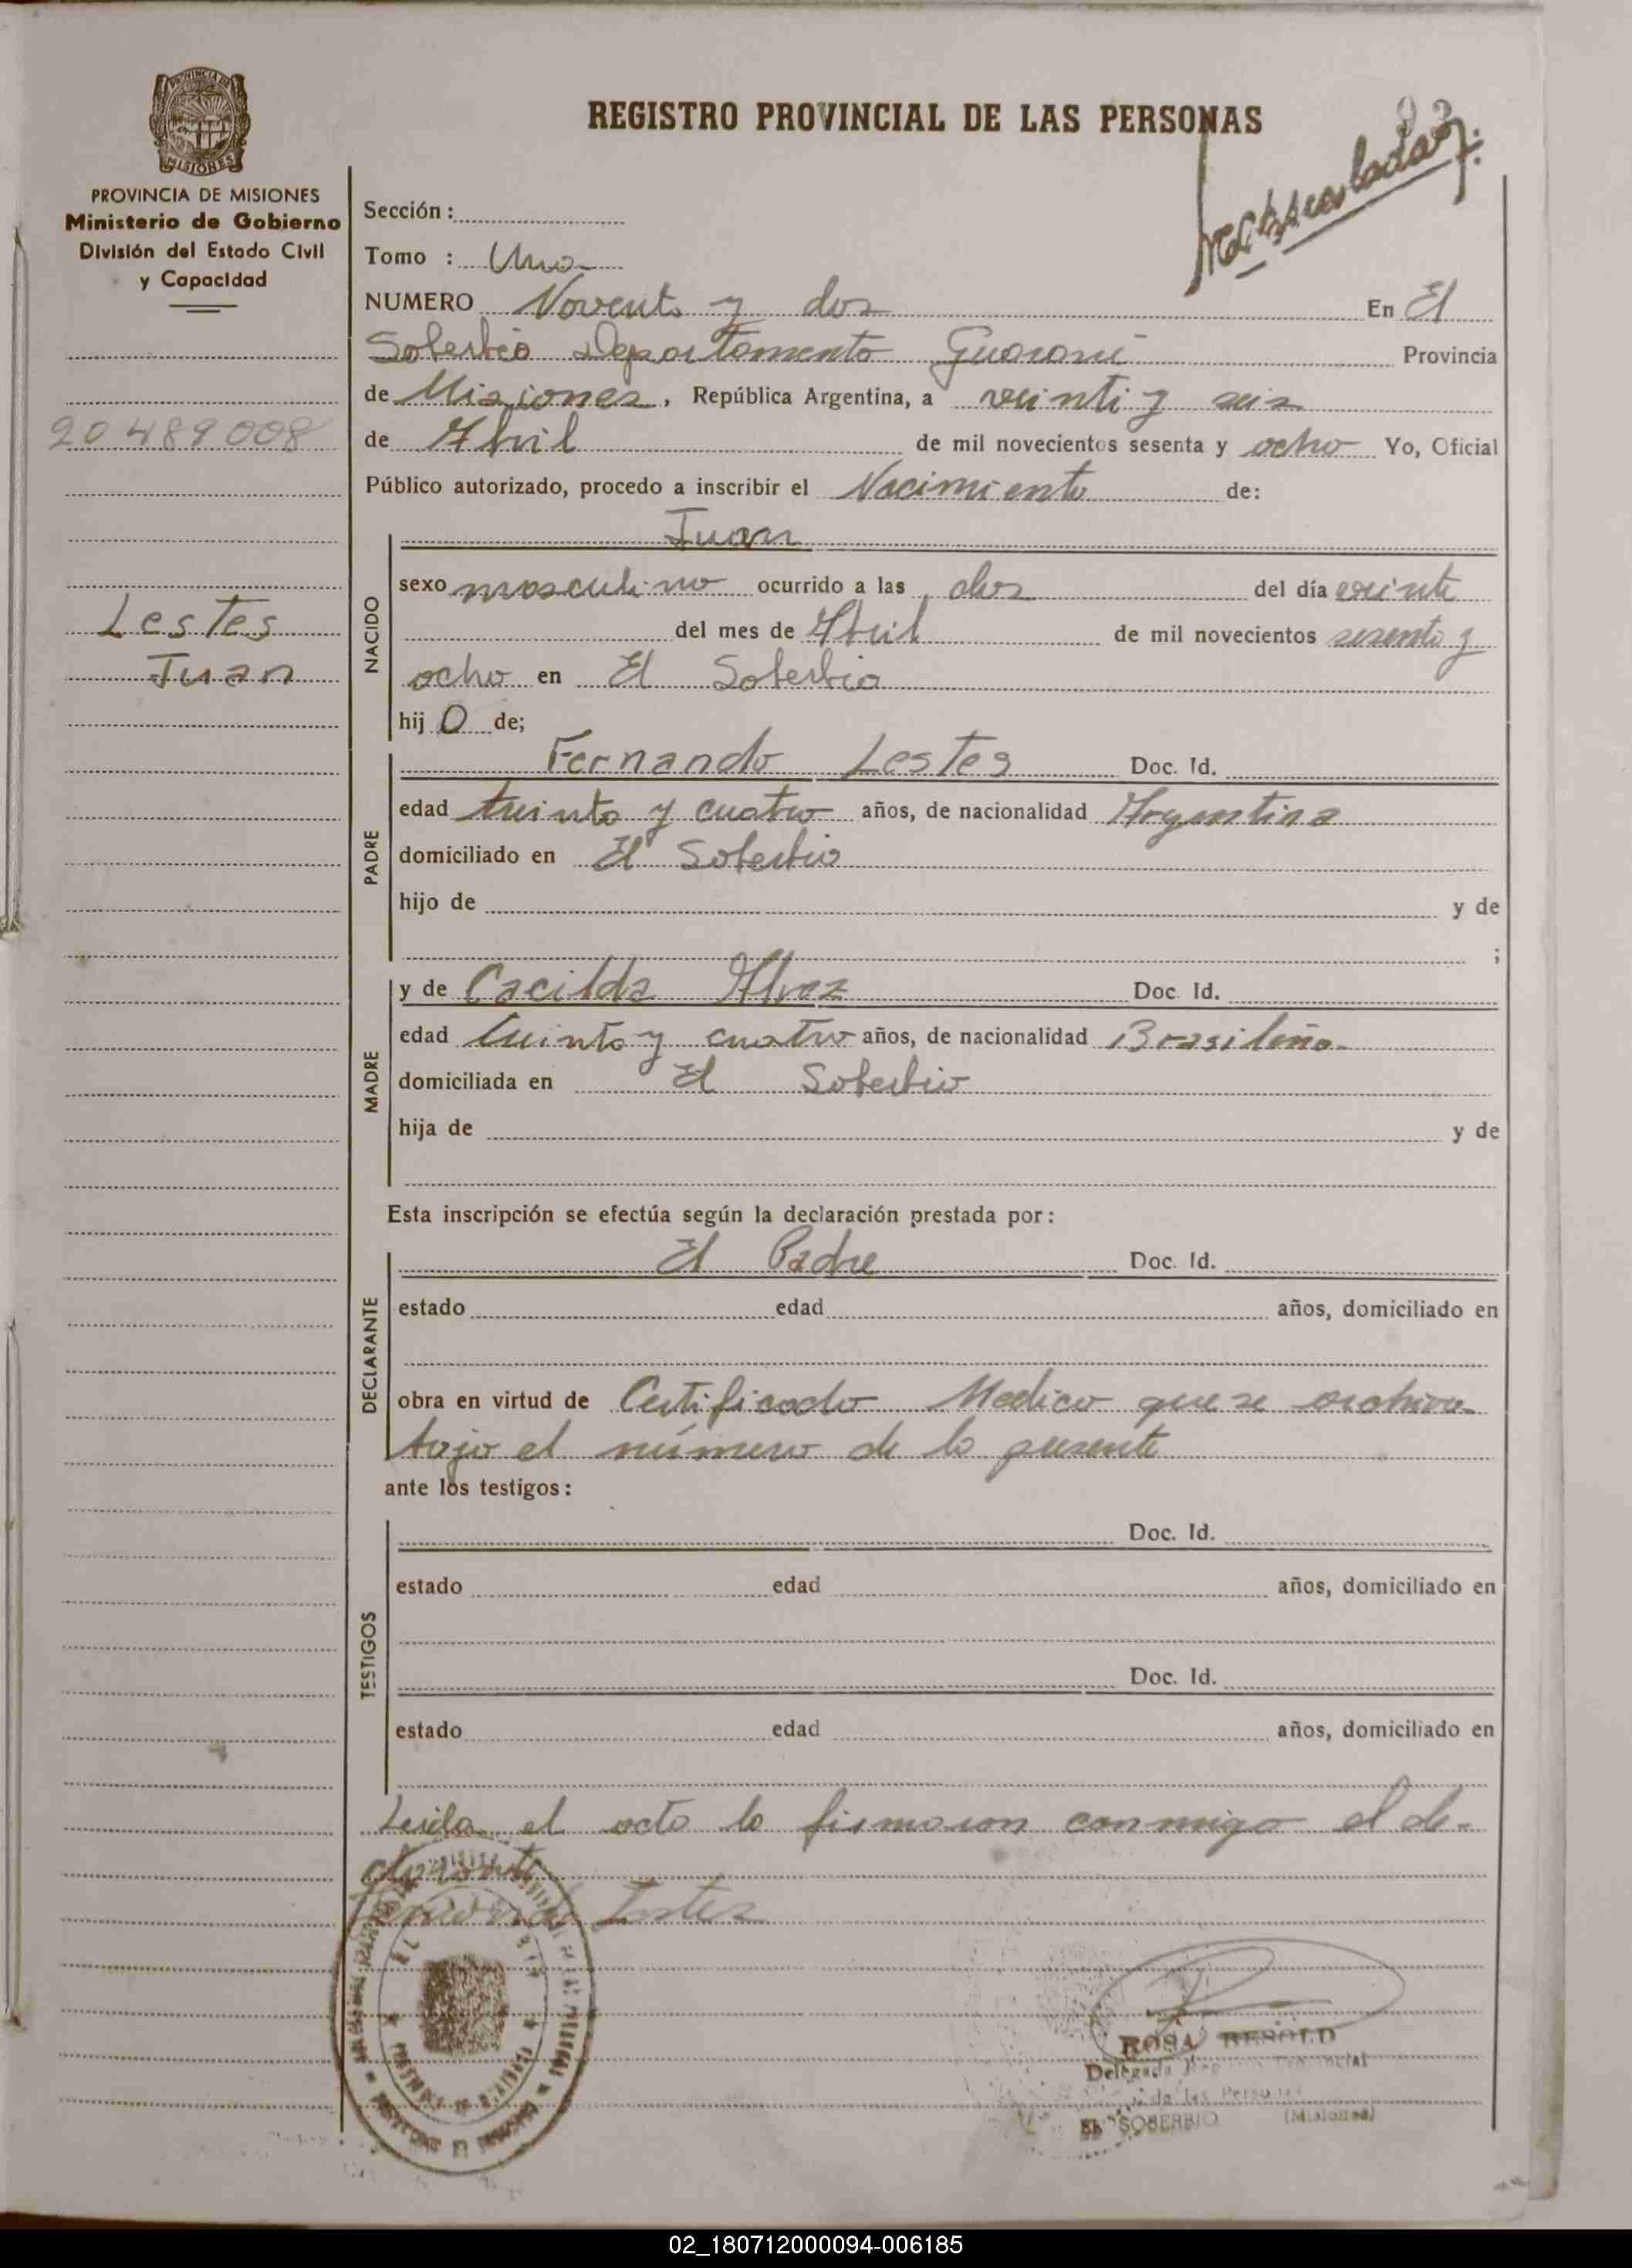 PROVINCIA DE
MISIONES
PROVINCIA DE MISIONES
Ministerio de Gobierno
División del Estado Civil
y Capacidad
20489008
Lestes
Juan
REGISTRO PROVINCIAL DE LAS PERSONAS
93
Sección :
Tomo : Uno
NUMERO Noventa y dos En El
Soberbio Departamento Guaraní Provincia
de Misiones, República Argentina, a veinti y seis
de Abril de mil novecientos sesenta y ocho Yo, Oficial
Público autorizado, procedo a inscribir el Nacimiento de:
NACIDO
Juan
sexo masculino ocurrido a las dos del día veinte
del mes de Abril de mil novecientos sesenta y
ocho en El Soberbio
hij o de;
PADRE
Fernando Lestes Doc. Id.
edad treinta y cuatro años, de nacionalidad Argentina
domiciliado en El Soberbio
hijo de y de
;
MADRE
y de Cacilda Alvez Doc. Id.
edad treinta y cuatro años, de nacionalidad Brasileña
domiciliada en El Soberbio
hija de y de
Esta inscripción se efectúa según la declaración prestada por:
DECLARANTE
El Padre Doc. Id.
estado edad años, domiciliado en
obra en virtud de Certificado Medico que se archiva
bajo el número de la presente
ante los testigos:
TESTIGOS
Doc. Id.
estado edad años, domiciliado en
Doc. Id.
estado edad años, domiciliado en
Leida el acta la firmaron conmigo el de-
clarante
ROSA BESOLD
Delegada Registro Provincial
de las Personas
EL SOBERBIO (Misiones)
02_180712000094-006185